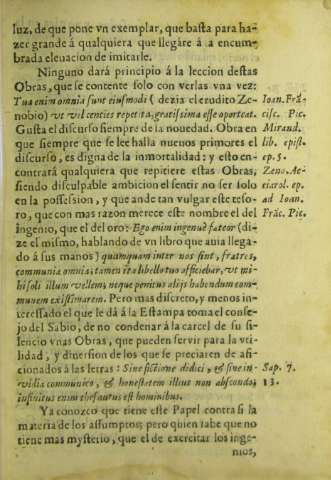 luz, de que pone vn exemplar, que basta para ha-
zer grande á qualquiera que llegáre á la encum-
brada eleuacion de imitarle.
Ninguno dará principio á la leccion destas
Obras, que se contente solo con verlas vna vez:
Tua enim omnia sunt eiusmodi ( dezia el erudito Ze-
nobio) vt vel centies repetita, gratissima esse oporteat.
Gusta el discurso siempre de la nouedad. Obra en
que siempre que se lee halla nueuos primores el
discurso, es digna de la inmortalidad: y esto en-
contrará qualquiera que repitiere estas Obras,
siendo disculpable ambicion el sentir no ser solo
en la possession, y que ande tan vulgar este teso-
ro, que con mas razon merece este nombre el del
ingenio, que el del oro: Ego enim ingenuè fateor (di-
ze el mismo, hablando de vn libro que auia llega-
do á sus manos) quamquam inter nos sint, fratres,
communia omnia; tamen ita libellotuo afficiebar, vt mi-
hi soli illum vellem; neque penitus alijs habendum com-
munem existimarem. Pero mas discreto, y menos in-
teressado el que le dá á la Estampa toma el conse-
jo del Sabio, de no condenar á la carcel de su si-
lencio vnas Obras, que pueden servir para la vti-
lidad, y diuersion de los que se preciaren de afi-
cionados á las letras: Sine fictione didici, & sine in-
vidia communico, & honestatem illius non abscondo;
infinitus enim thesaurus est hominibus.
Ya conozco que tiene este Papel contra si la
materia de los assumptos; pero quien sabe que no
tiene mas mysterio, que el de exercitar los inge-
nios,
Ioan. Frã-
cisc. Pic.
Mirand.
lib. epist.
ep. 5.
Zeno. Ac-
ciarol. ep.
ad Ioan.
Frãc. Pic.
Sap. 7.
13.